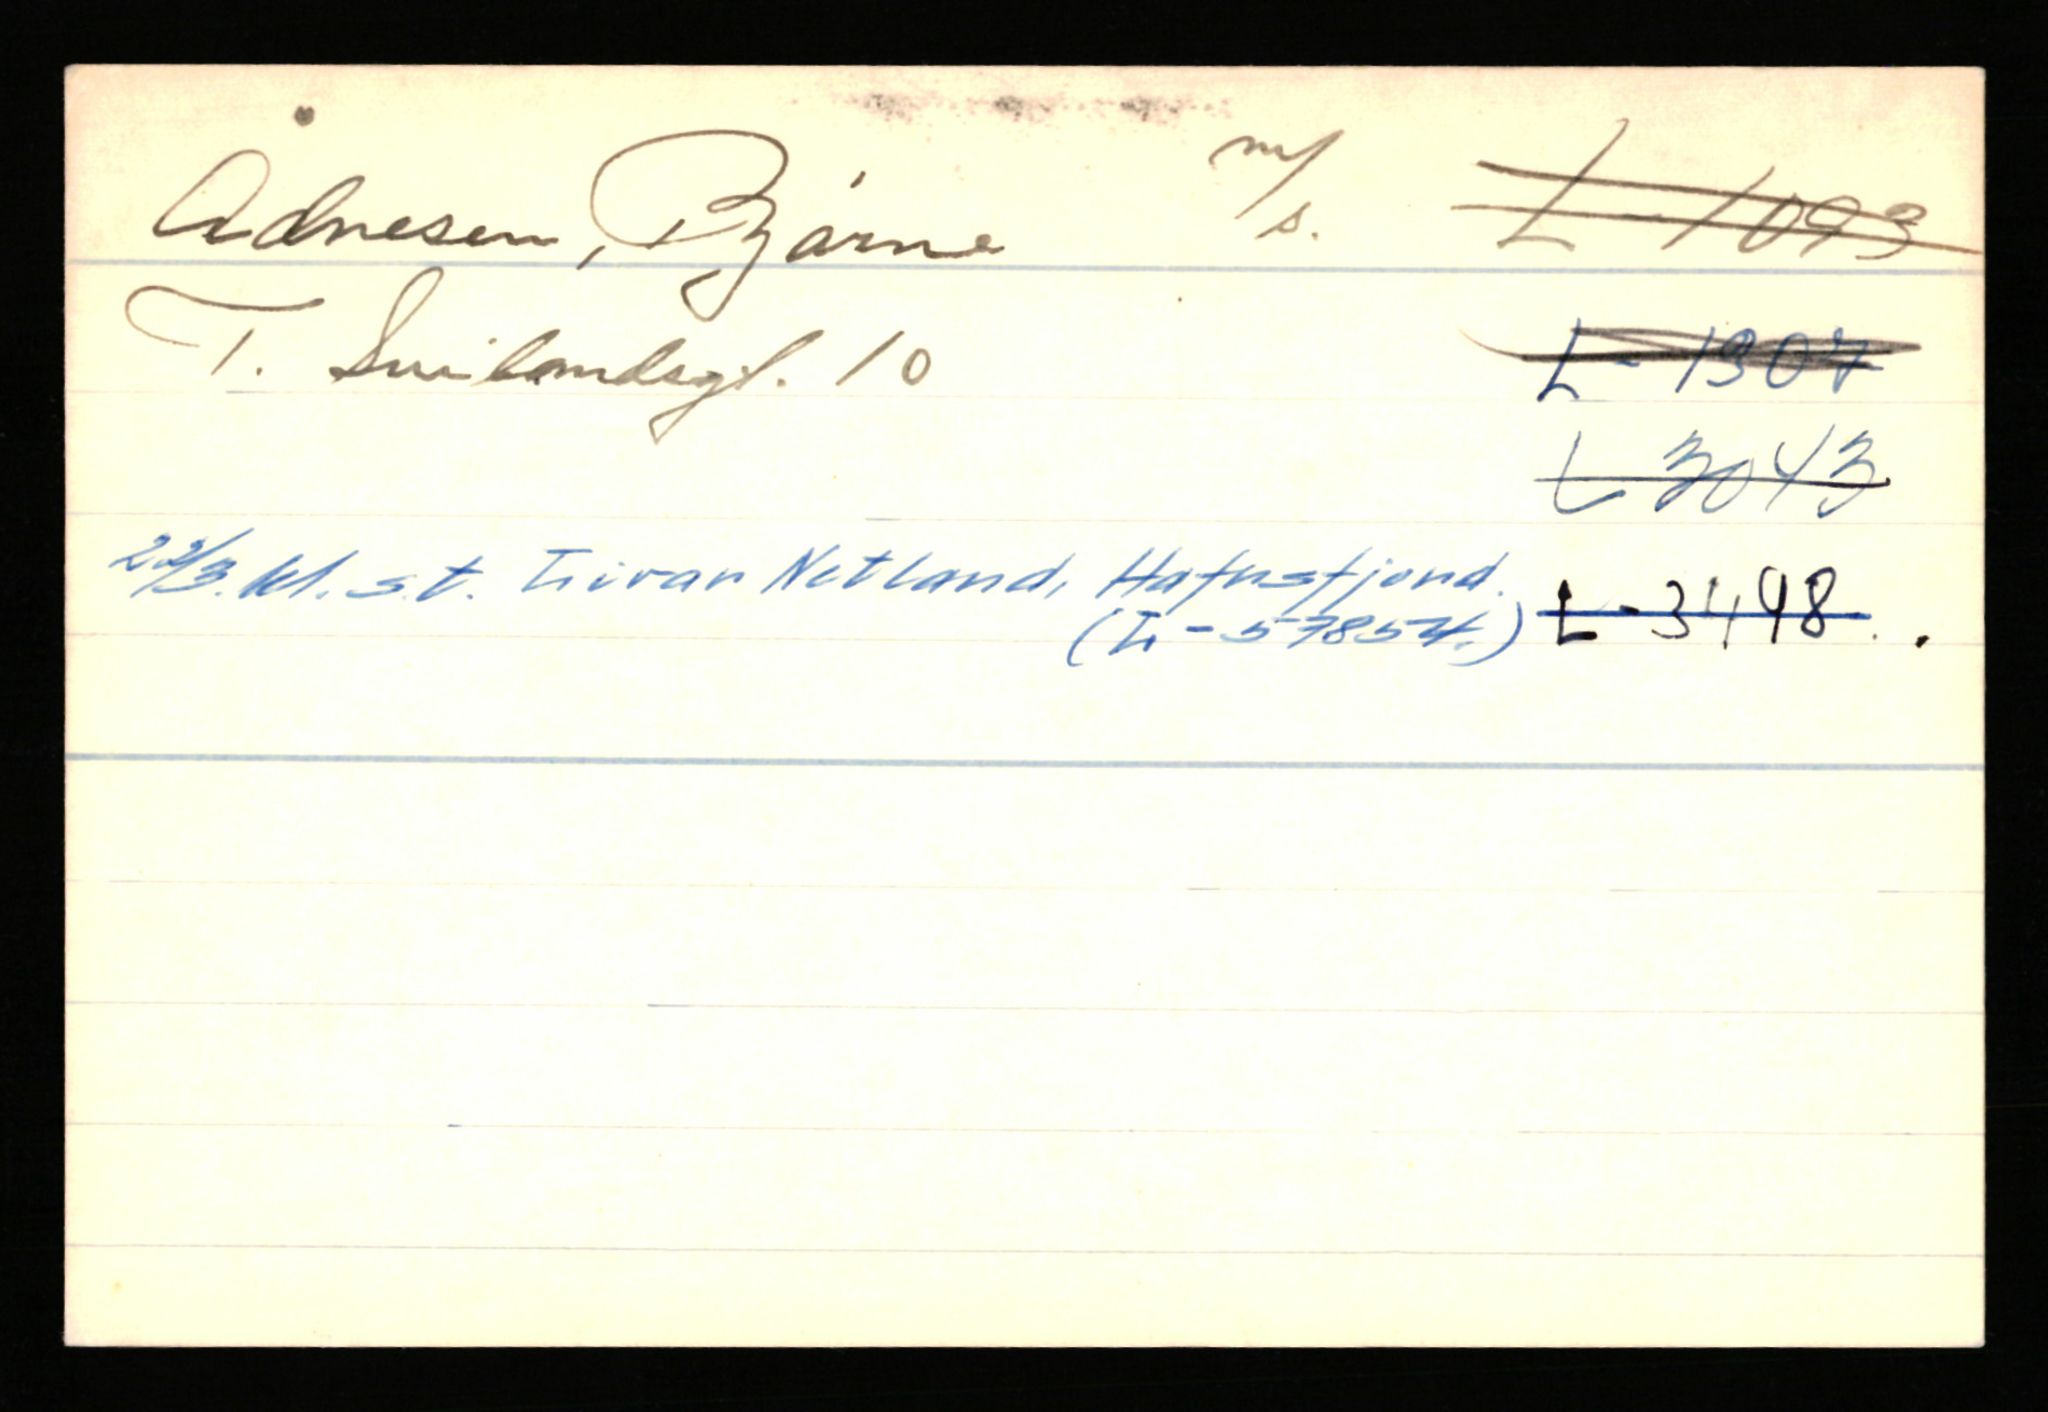 Ådnesen, Bjarne m/s. L-1093
T. Svilandsgt. 10 L-1307
L 3043
22/3. kl. s.t. Eivar Netland, Hafrsfjord. L-3498..
(L-57854.)